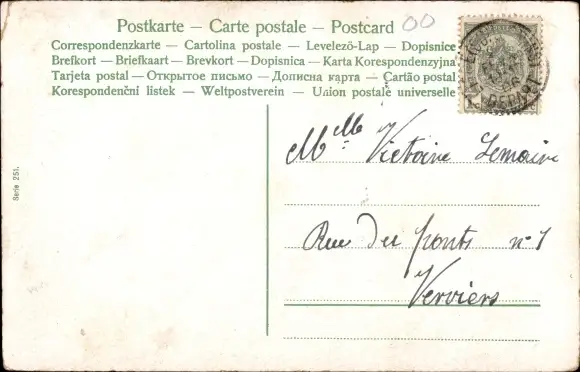 Postkarte — Carte postale — Postcard
Correspondenzkarte — Cartolina postale — Levelező-Lap — Dopisnice
Brefkort — Briefkaart — Brevkort — Dopisnica — Karta Korespondenzyjna
Tarjeta postal — Открытое письмо — Дописна карта — Cartão postal
Korespondenční listek — Weltpostverein — Union postale universelle
00
Serie 251.
Mlle Victoire Lemaire
Rue du ponts n° 1
Verviers